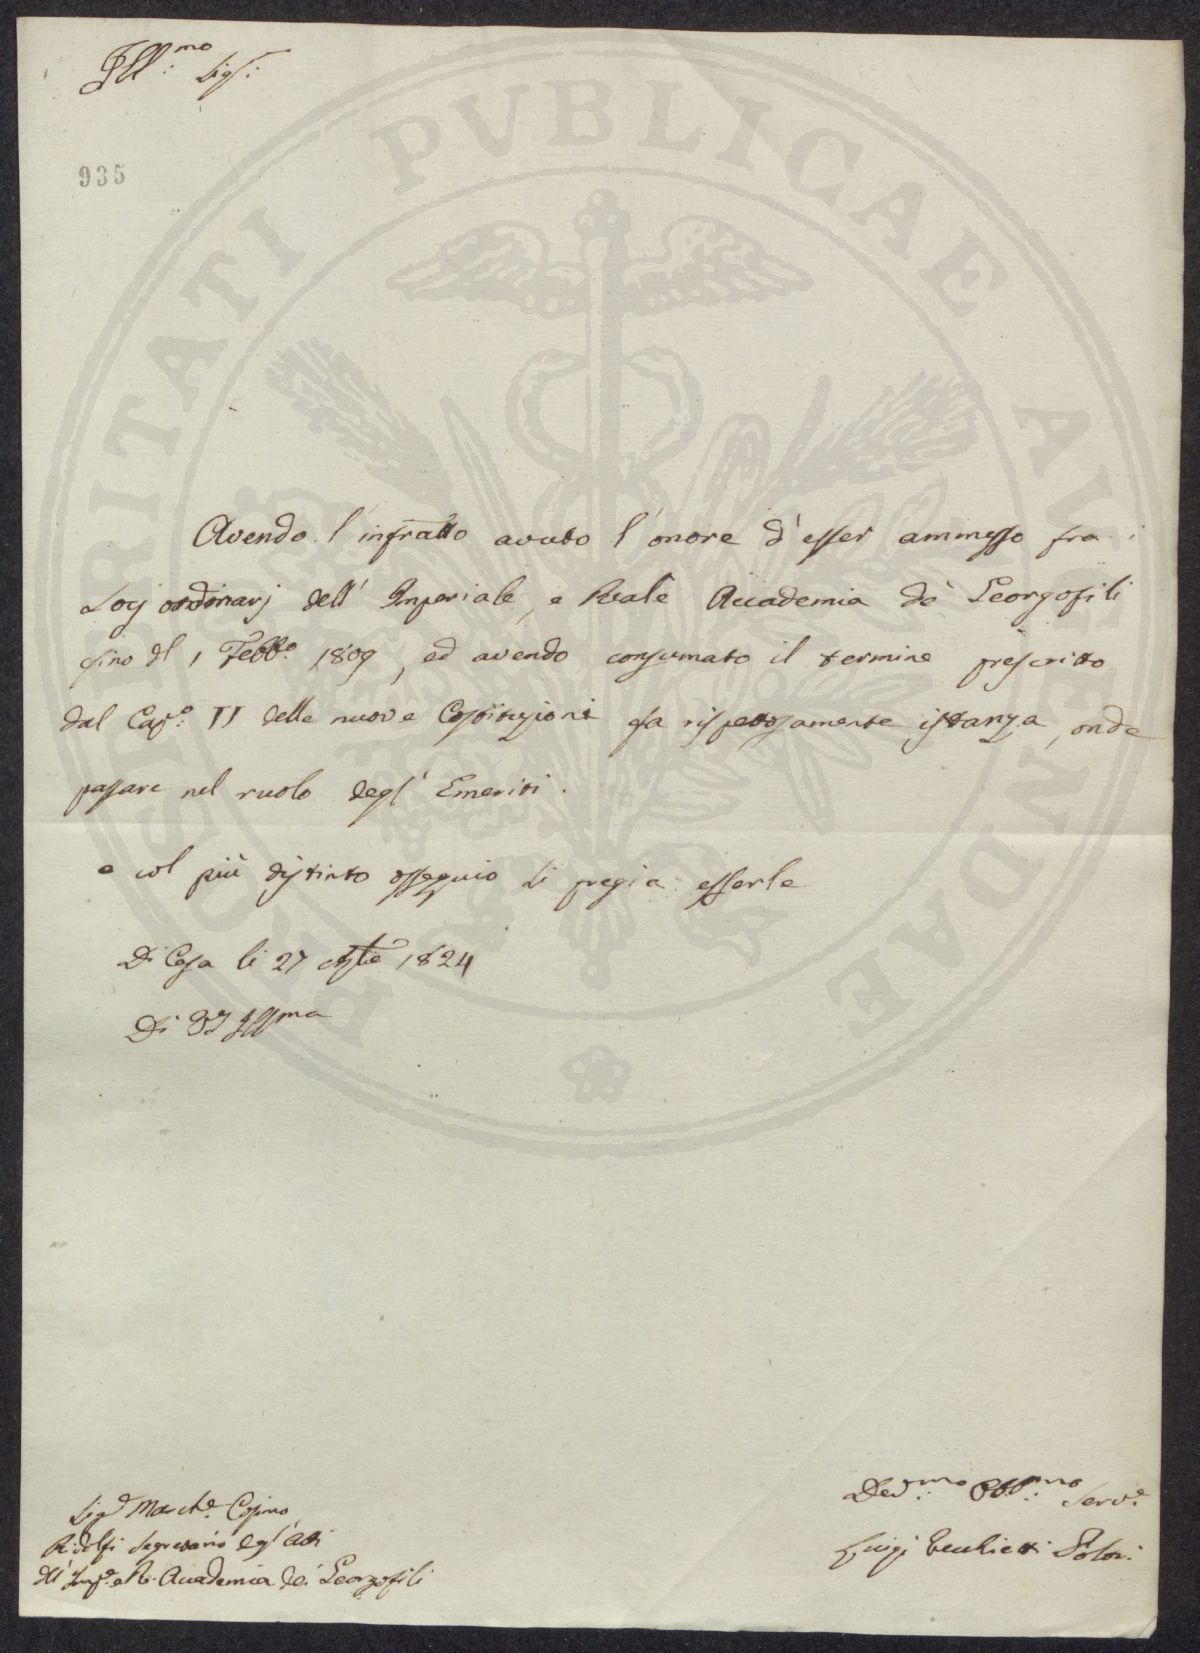 Ill:mo Sig.r:
935
Avendo l'infratto avuto l'onore d'esser ammesso fra i
Socj ordinarj dell'Imperiale, e Reale Accademia de' Georgofili
fino dl 1 Febb.o 1809, ed avendo consumato il termine prescritto
dal Cap.o: II delle nuove Costituzioni fa rispettosamente istanza, onde
passare nel ruolo degl'Emeriti.
e col più distinto ossequio si pregia esserle
Di Casa li 27 1824
Di VS Ill.ma
Dev.mo: Obb.mo: Serv.e
Luigi
Sig.r March.e Cosimo
Ridolfi Segretario degl'Atti
dll'Imp.e e R. Accademia de' Georgofili
PROSPERITATI PVBLICAE AVGENDAE